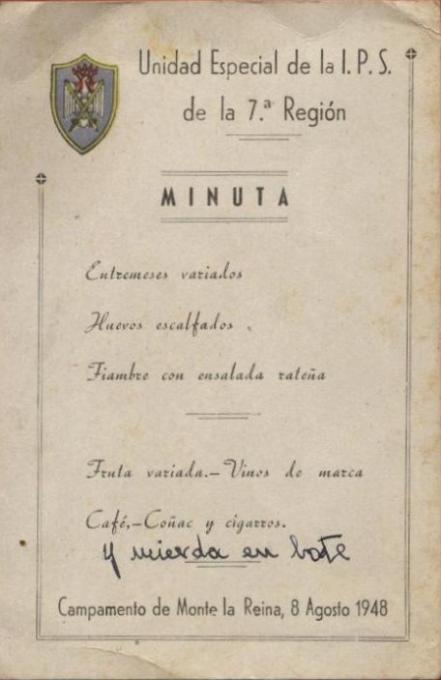 Unidad Especial de la I. P. S.
de la 7.ª Región
MINUTA
Entremeses variados
Huevos escalfados.
Fiambre con ensalada rateña
Fruta variada.—Vinos de marca
Café,—Coñac y cigarros.
y mierda en bote
Campamento de Monte la Reina, 8 Agosto 1948